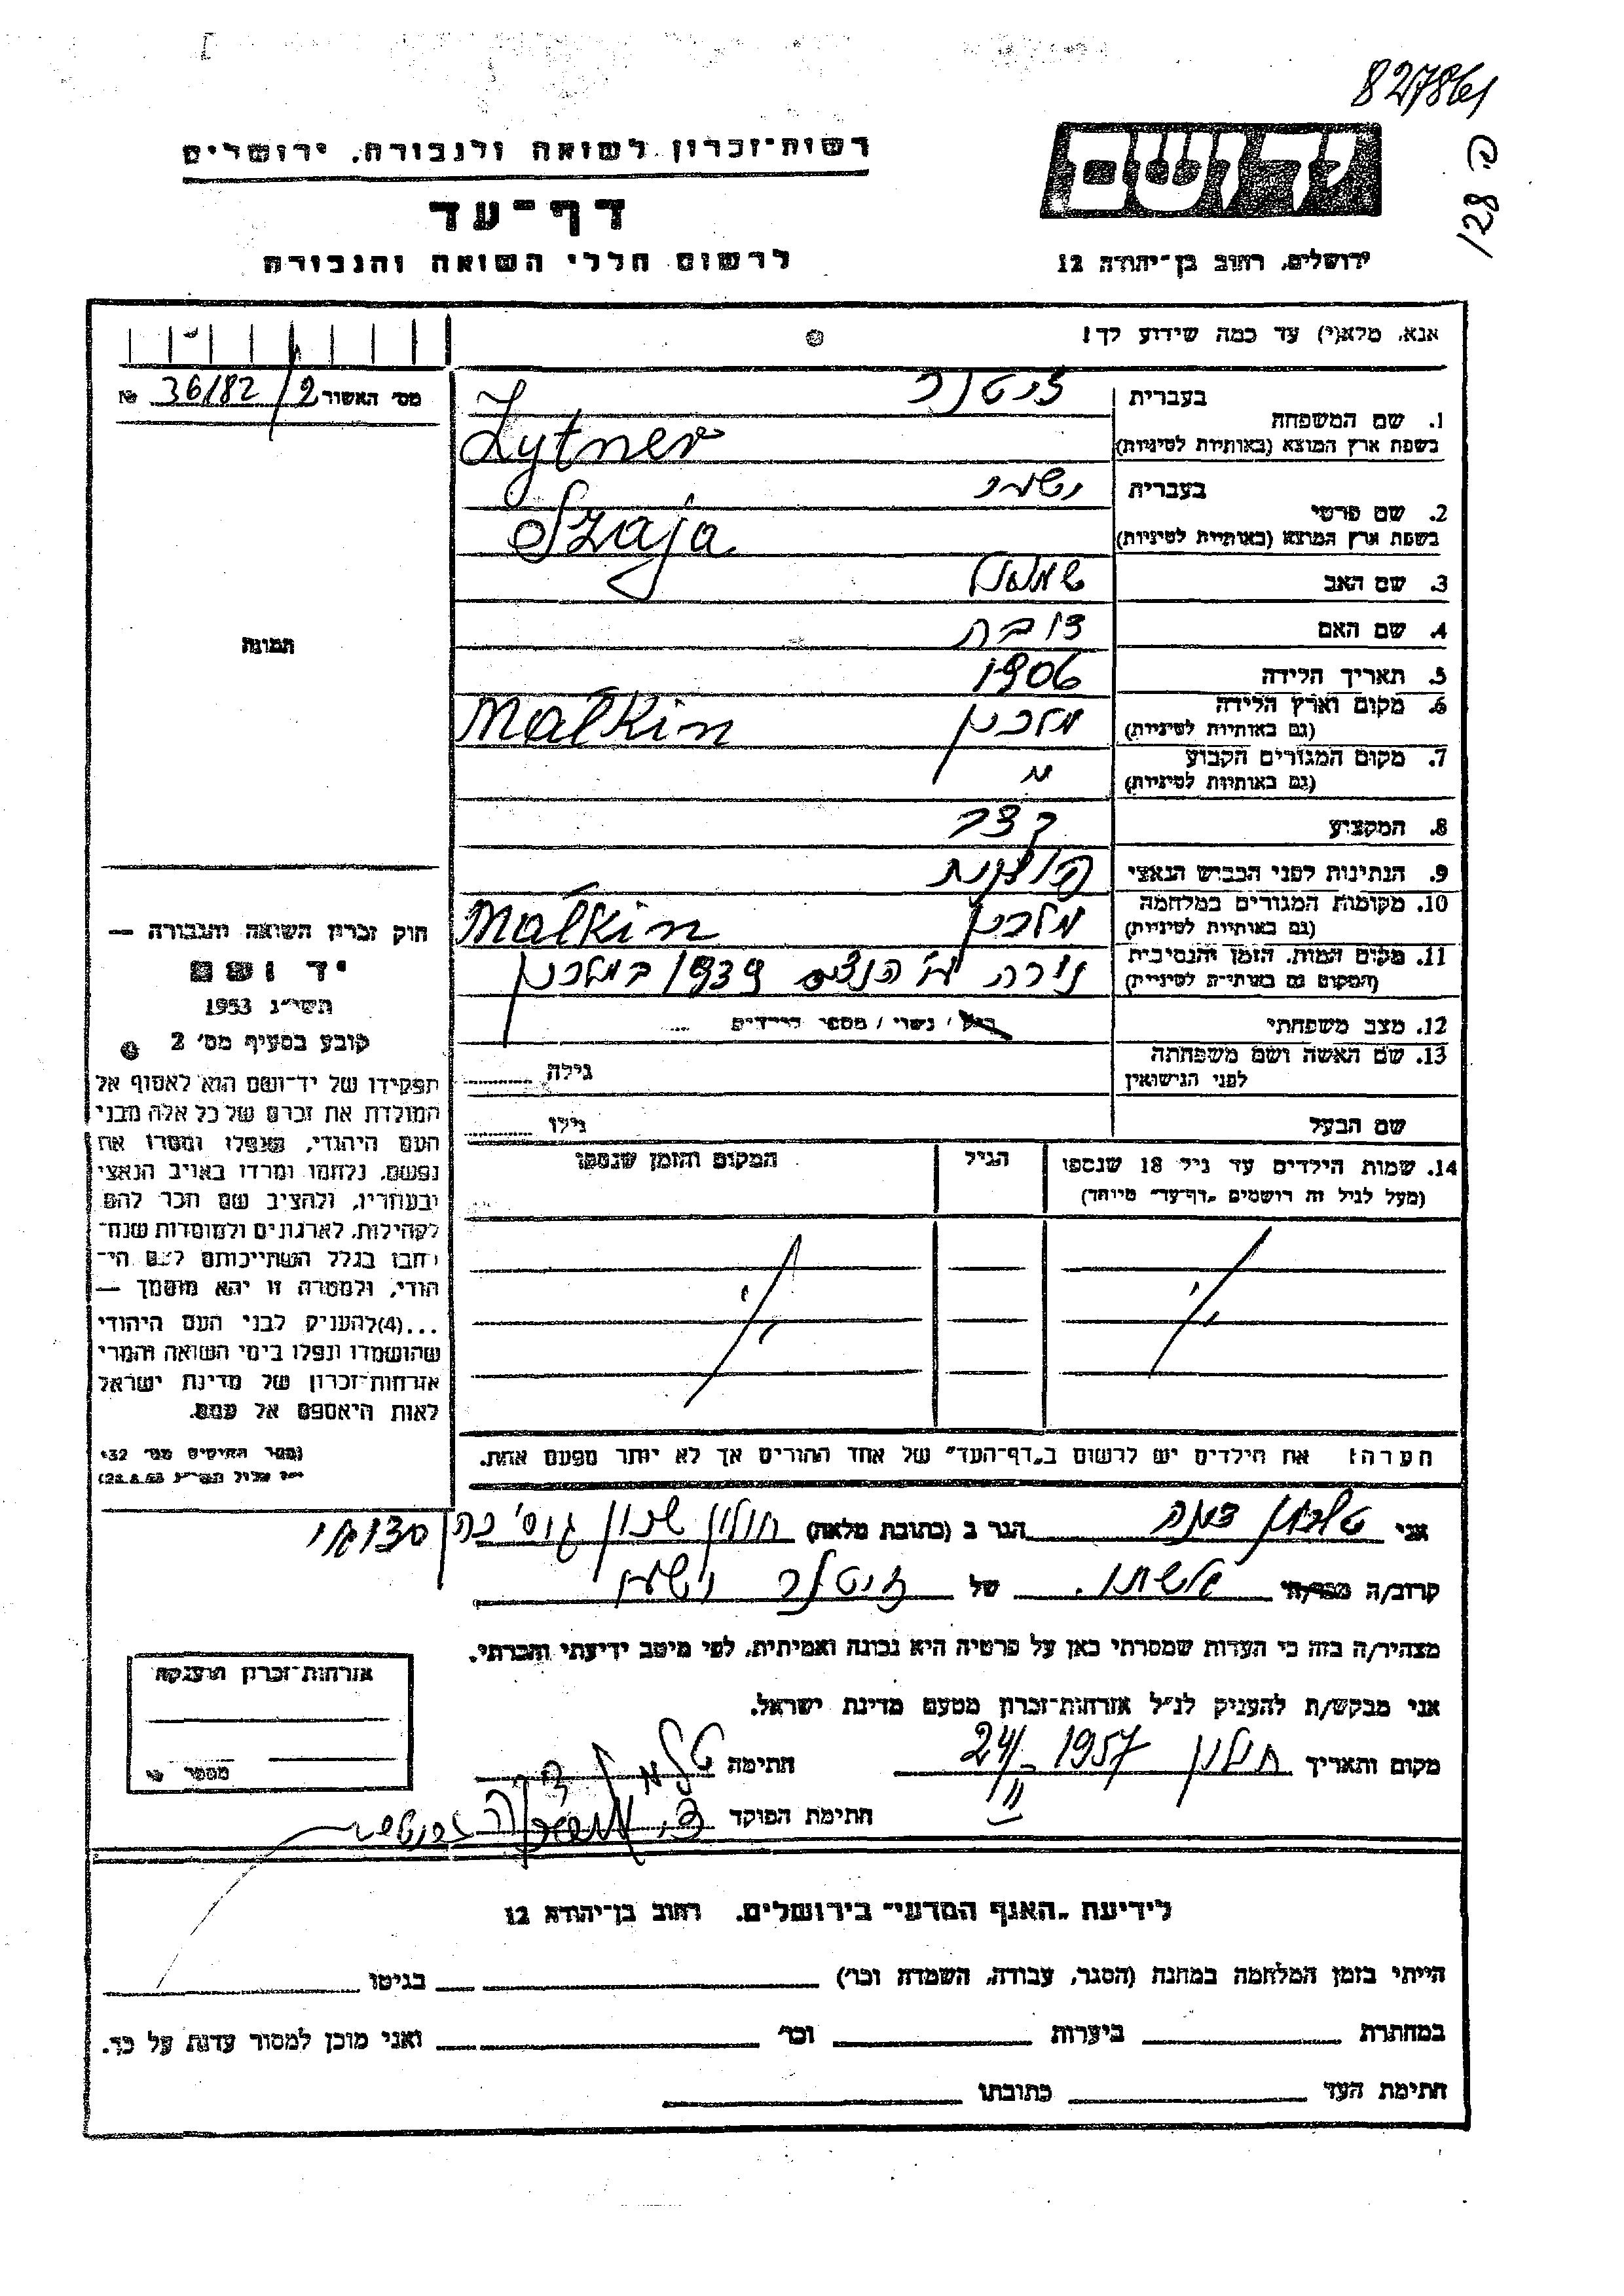 827861
128 פ
יד ושם
ירושלים, רחוב בן־יהודה 12
רשות־זכרון לשואה ולגבורה, ירושלים
דף־עד
לרשום חללי השואה והגבורה
אנא, מלא(י) עד כמה שידוע לך!
מס׳ האשור 36/82/2 №
1. שם המשפחה
בעברית זיטנר
בשפת ארץ המוצא (באותיות לטיניות) Zytner
2. שם פרטי
בעברית ישעי
בשפת ארץ המוצא (באותיות לטיניות) Szaja
3. שם האב שמואל
4. שם האם
5. תאריך הלידה 1906
6. מקום וארץ הלידה מלכין Małkin
(גם באותיות לטיניות)
7. מקום המגורים הקבוע
(גם באותיות לטיניות)
8. המקצוע קצב
9. הנתינות לפני הכבוש הנאצי פולנית
10. מקומות המגורים במלחמה מלכין Małkin
(גם באותיות לטיניות)
11. מקום המות, הזמן והנסיבות נורה ע״י הנצים 1939 במלכין
(המקום גם באותיות לטיניות)
12. מצב משפחתי רווק / נשוי / מספר הילדים
13. שם האשה ושם משפחתה
לפני הנישואין
גילה
שם הבעל גילו
14. שמות הילדים עד גיל 18 שנספו הגיל המקום והזמן שנספו
(מעל לגיל זה רושמים „דף־עד״ מיוחד)
הערה: את הילדים יש לרשום ב„דף־העד״ של אחד ההורים אך לא יותר מפעם אחת.
תמונה
חוק זכרון השואה והגבורה —
יד ושם
תשי״ג 1953
קובע בסעיף מס׳ 2
תפקידו של יד־ושם הוא לאסוף אל
המולדת את זכרם של כל אלה מבני
העם היהודי, שנפלו ומסרו את
נפשם, נלחמו ומרדו באויב הנאצי
ובעוזריו, ולהציב שם וזכר להם
לקהילות, לארגונים ולמוסדות שנח־
רבו בגלל השתייכותם לעם הי־
הודי, ולמטרה זו יהא מוסמך —
...(4)להעניק לבני העם היהודי
שהושמדו ונפלו בימי השואה והמרי
אזרחות־זכרון של מדינת ישראל
לאות היאספם אל עמם.
(ספר החוקים מס׳ 132
י״ז אלול תשי״ג 28.8.53)
אני הגר ב (כתובת מלאה) חולון שכון
קרוב/ה מכר/ה של זיטנר ישעי
מצהיר/ה בזה כי העדות שמסרתי כאן על פרטיה היא נכונה ואמיתית, לפי מיטב ידיעתי והכרתי.
אני מבקש/ת להעניק לנ״ל אזרחות־זכרון מטעם מדינת ישראל.
מקום ותאריך חולון 24/II 1957 חתימה
חתימת הפוקד
אזרחות־זכרון הוענקה
מספר
לידיעת „האגף המדעי״ בירושלים, רחוב בן־יהודה 12
הייתי בזמן המלחמה במחנה (הסגר, עבודה, השמדה וכו׳) בגיטו
במחתרת ביערות וכו׳ ואני מוכן למסור עדות על כך.
חתימת העד כתובתו